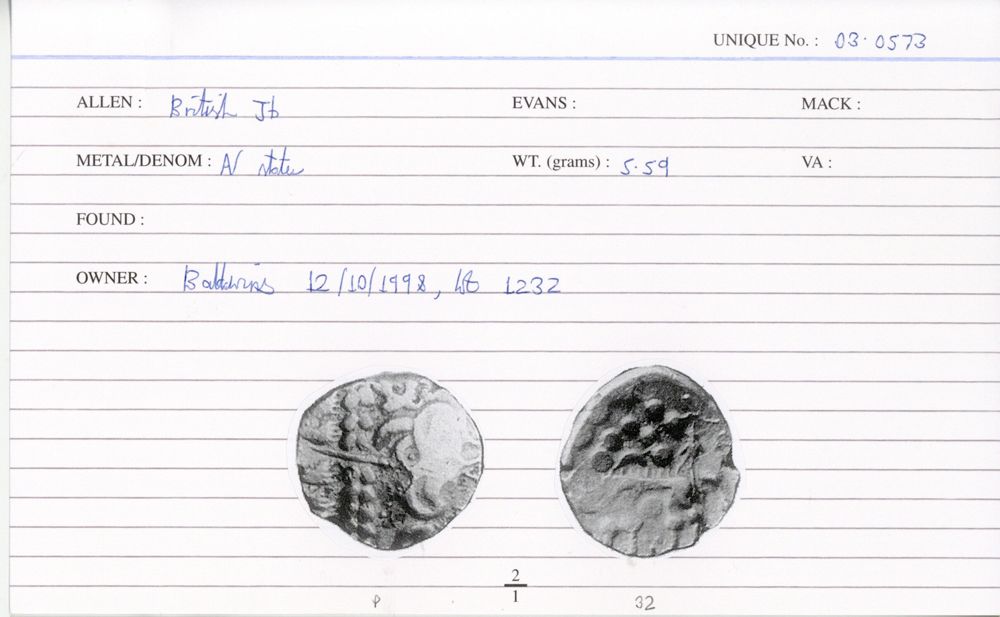 UNIQUE No. : 03·0573
ALLEN : British Jb EVANS : MACK :
METAL/DENOM : AV stater WT. (grams) : 5.59 VA :
FOUND :
OWNER : Baldwins 12/10/1998, lot 1232
2
1
P 32